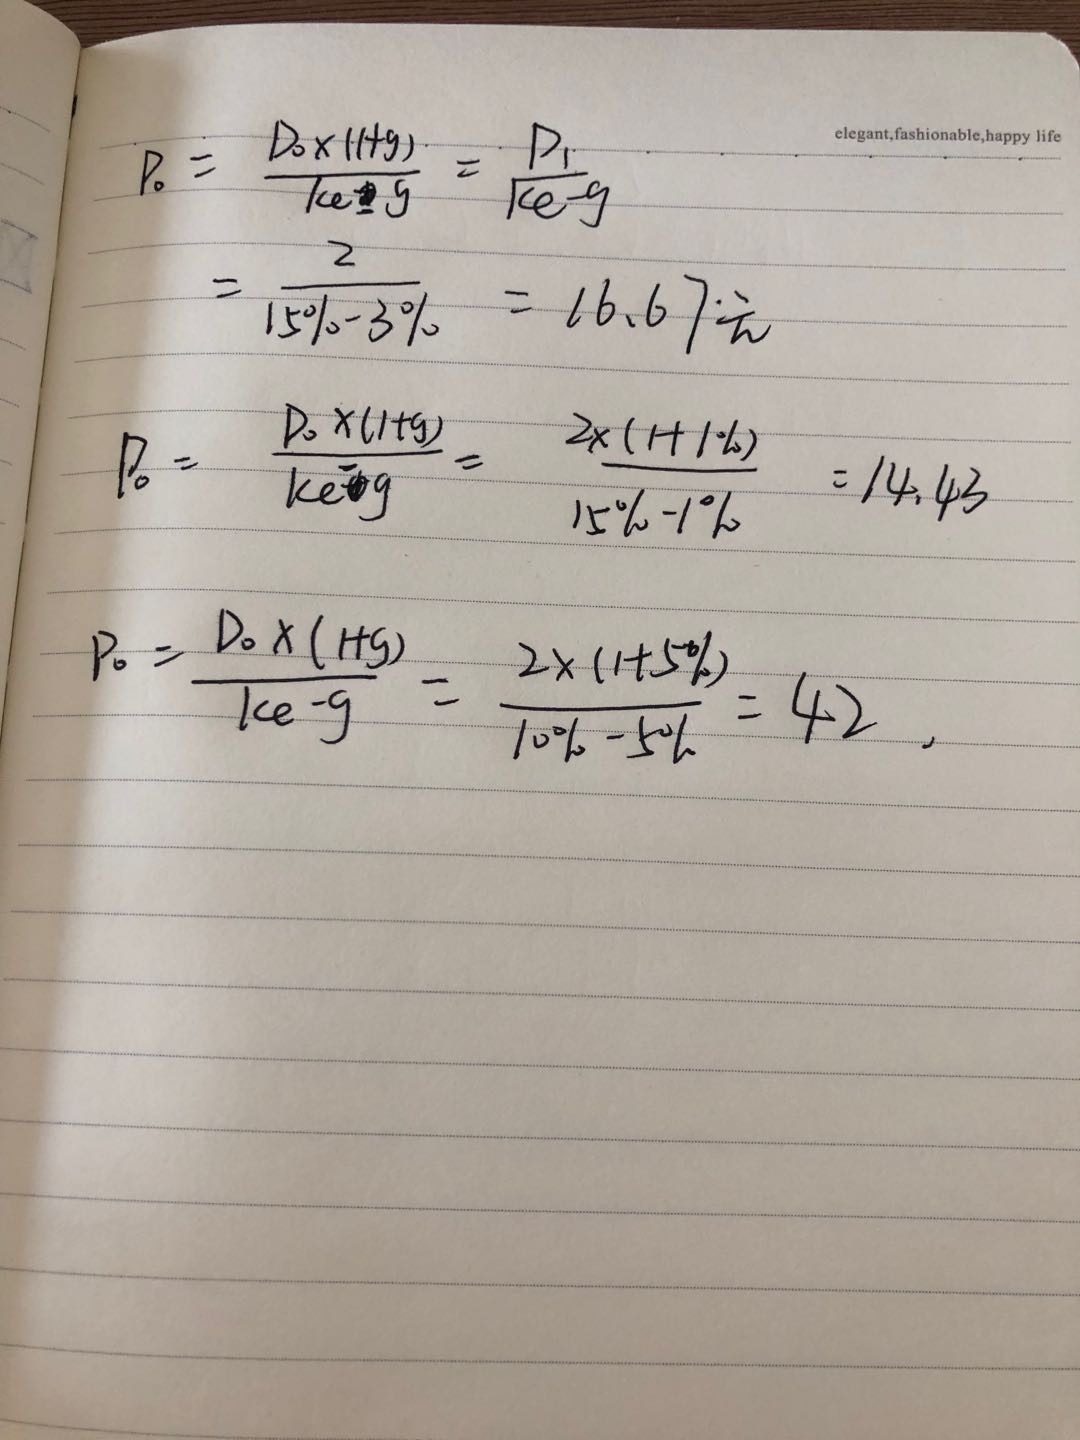 elegant,fashionable,happy life
P₀ = D₀×(1+g) / ke-g = D₁ / ke-g
= 2 / 15%-3% = 16.67元
P₀ = D₀×(1+g) / ke-g = 2×(1+1%) / 15%-1% = 14.43
P₀ = D₀×(1+g) / ke-g = 2×(1+5%) / 10%-5% = 42.